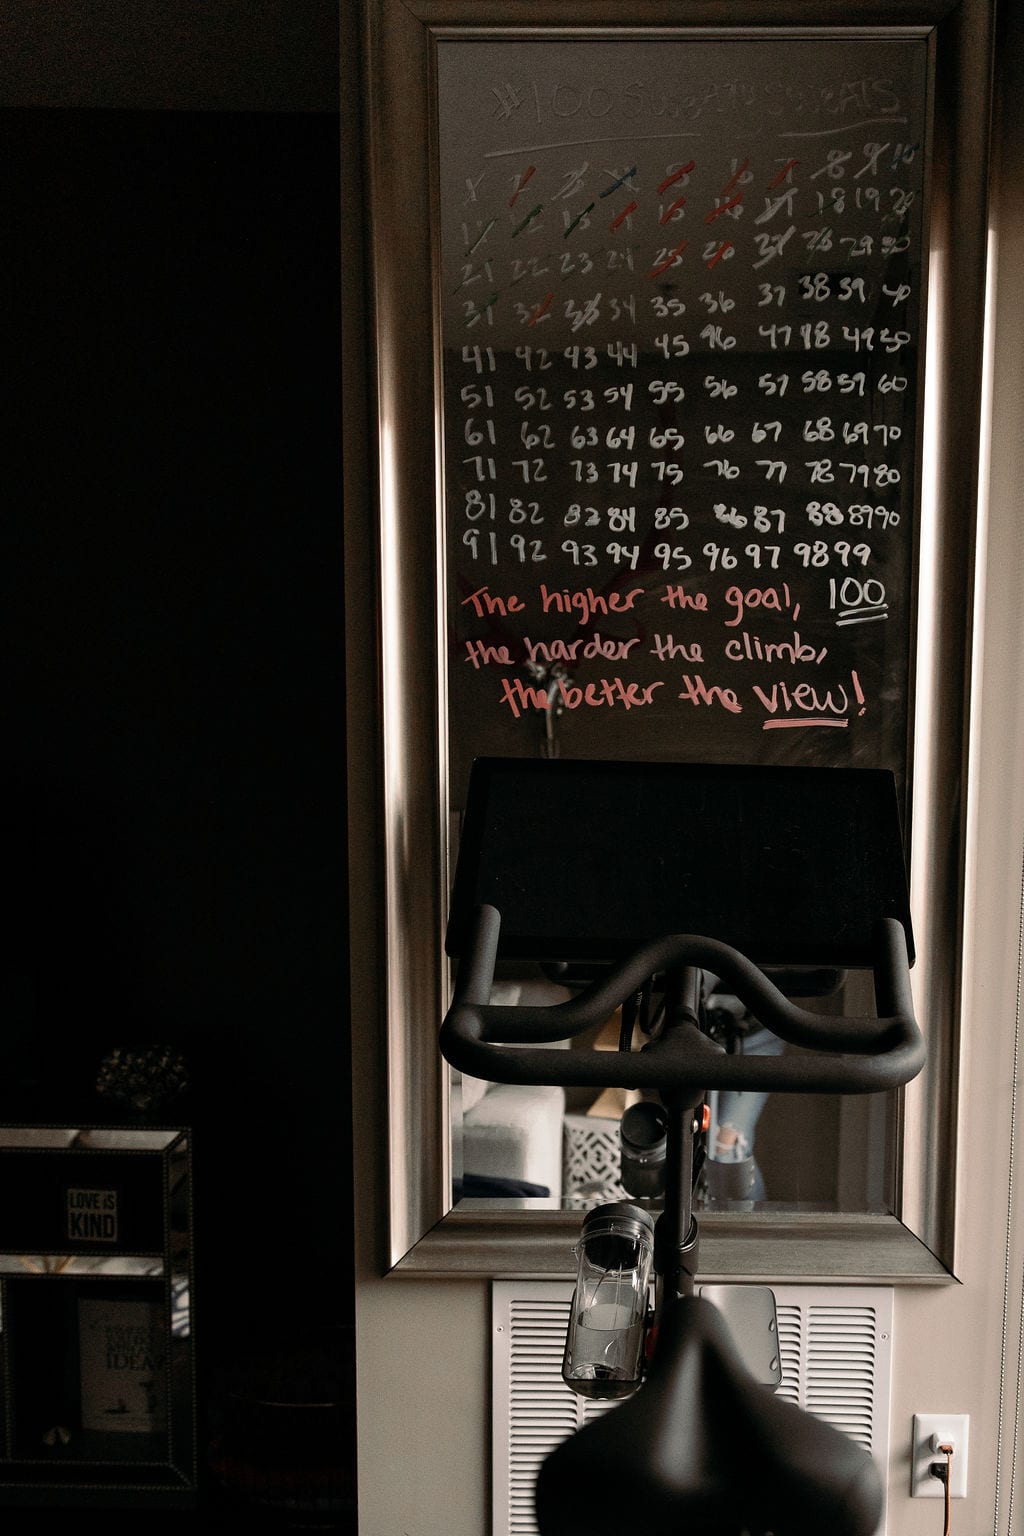 #100SweatySweats
1 2 3 4 5 6 7 8 9 10
11 12 13 14 15 16 17 18 19 20
21 22 23 24 25 26 27 28 29 30
31 32 33 34 35 36 37 38 39 40
41 42 43 44 45 46 47 48 49 50
51 52 53 54 55 56 57 58 59 60
61 62 63 64 65 66 67 68 69 70
71 72 73 74 75 76 77 78 79 80
81 82 83 84 85 86 87 88 89 90
91 92 93 94 95 96 97 98 99
The higher the goal, 100
the harder the climb,
the better the view!
LOVE iS
KIND
IDEA